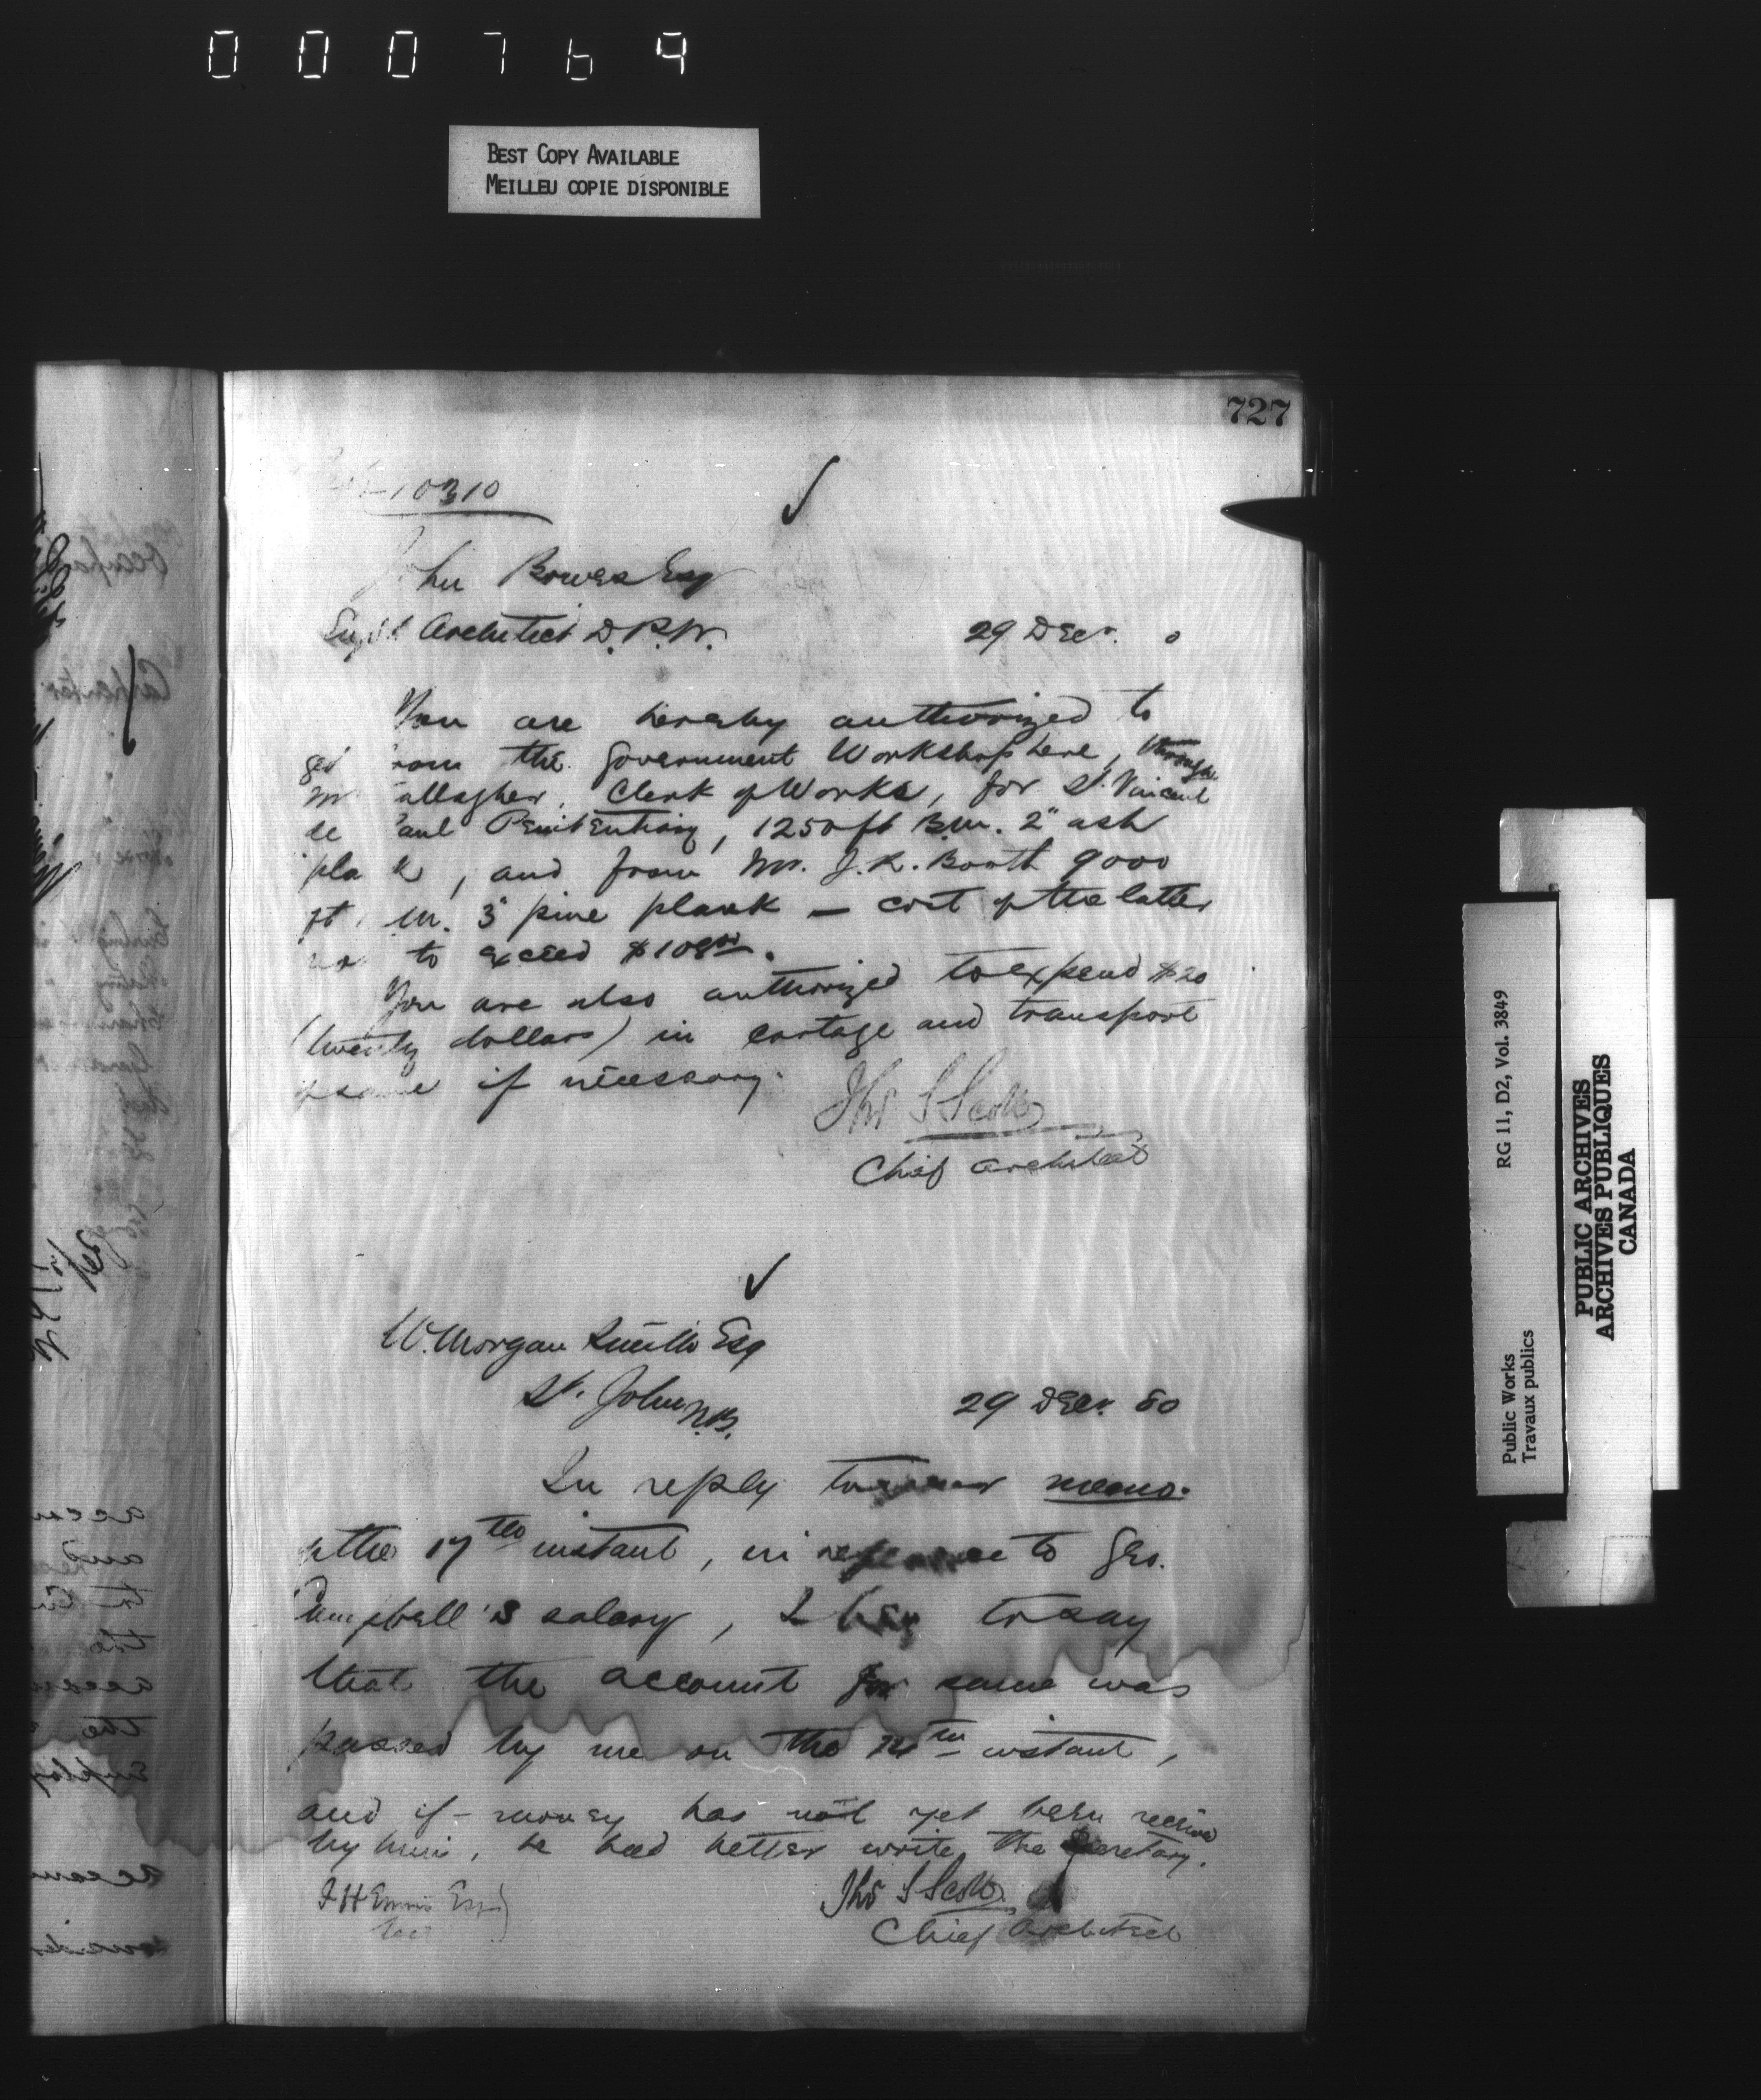 000769
BEST COPY AVAILABLE
MEILLEU COPIE DISPONIBLE
727
10310
John Bowes Esq
Architect D.P.W. 29 Dec.
You are hereby authorized to
get from the Government Workshop here, through
Mr Gallagher, Clerk of Works, for St. Vincent
de Paul Penitentiary, 1250 ft B.M. 2" ash
plank, and from Mr. J.R. Booth 9000
ft M. 3" pine plank — cost of the latter
not to exceed $108.00.
You are also authorized to expend $20
(twenty dollars) in cartage and transport
of same if necessary.
Thos S Scott
Chief Architect
W. Morgan Smith Esq
St. John N.B. 29 Dec. 80
In reply to your memo.
of the 17th instant, in reference to Geo.
Campbell's salary, I beg to say
that the account for same was
passed by me on the instant,
and if money has not yet been received
by him, he had better write the Secretary.
Thos S Scott
Chief Architect
F H Ennis Esq
Sec
Public Works RG 11, D2, Vol. 3849
Travaux publics
PUBLIC ARCHIVES
ARCHIVES PUBLIQUES
CANADA